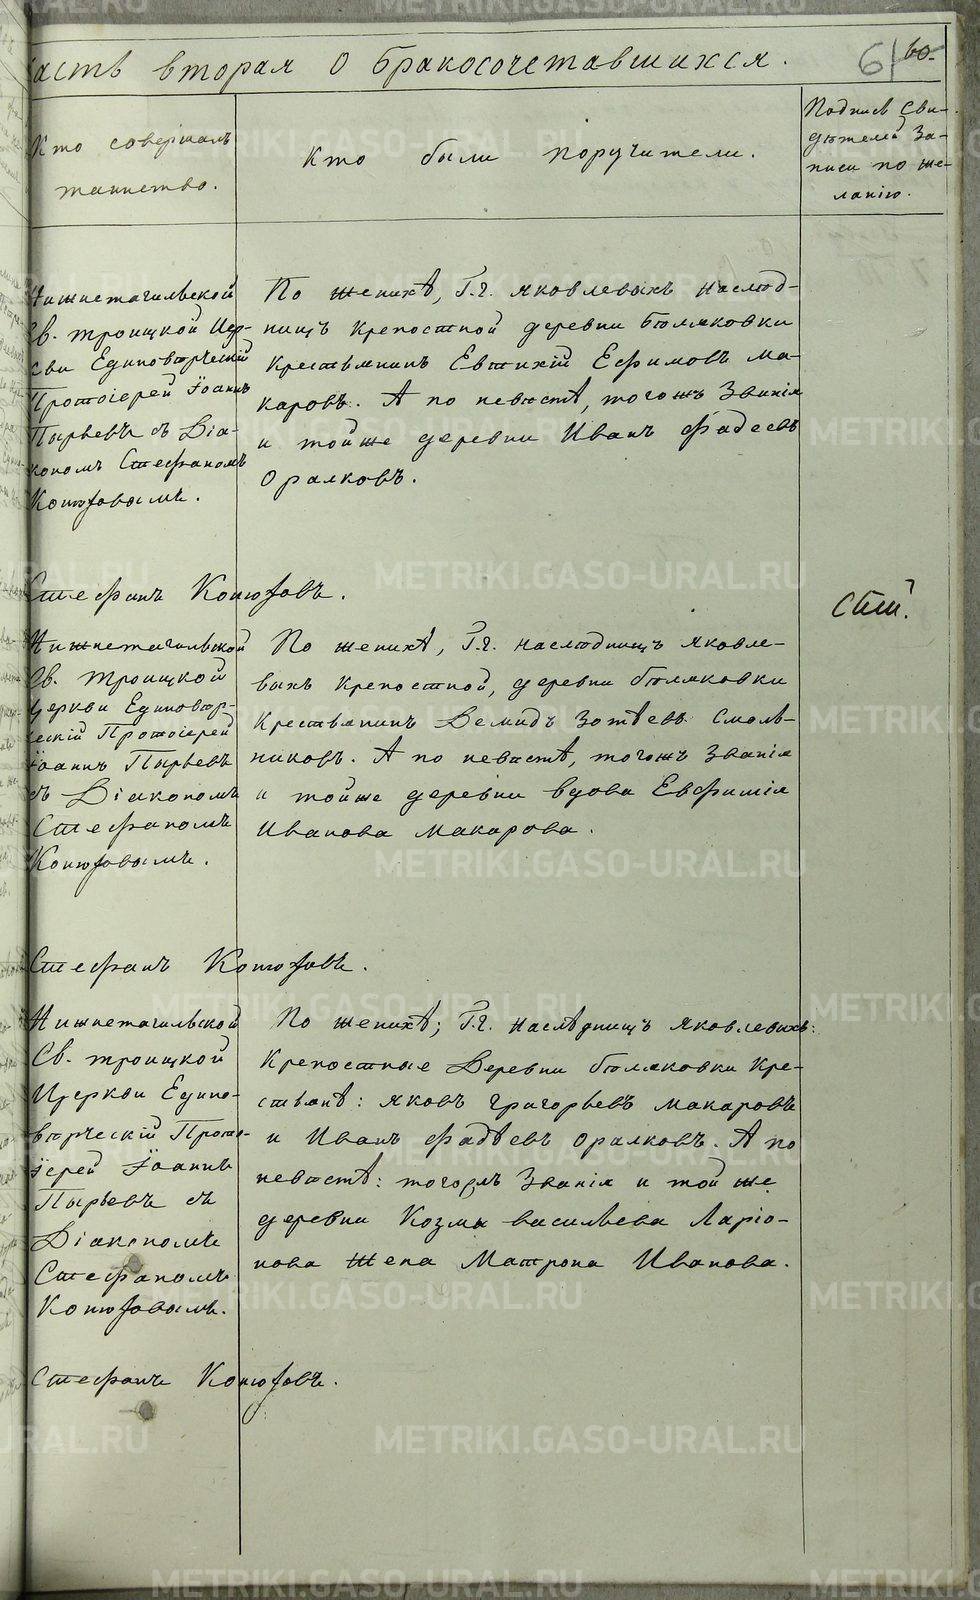 Часть вторая О бракосочетавшихся.
61 60.
Кто совершалъ
таинство.
Кто были поручители.
Подпись Сви-
дѣтелей За-
писи по же-
ланію.
Нижнетагильской
Св. Троицкой Цер-
кви Единовѣрческій
Протоіерей Іоаннъ
Пырьевъ съ Діа-
кономъ Стефаномъ
Конюховымъ.
По женихѣ, Г.г. Яковлевыхъ наслѣд-
ницъ крепостной деревни Бѣляковки
крестьянинъ Евтихій Ефимовъ Ма-
каровъ. А по невѣстѣ, тогожъ Званія
и тойже деревни Иванъ Фадеевъ
Оралковъ.
Стефанъ Конюховъ.
Нижнетагильской
Св. Троицкой
Церкви Единовѣр-
ческій Протоіерей
Іоаннъ Пырьевъ
съ Діакономъ
Стефаномъ
Конюховымъ.
По женихѣ, Г.г. наслѣдницъ Яковле-
выхъ крепостной, деревни Бѣляковки
Крестьянинъ Демидъ Зотѣевъ Смоль-
никовъ. А по невѣстѣ, тогожъ Званія
и тойже деревни вдова Евфимія
Иванова Макарова.
Стефанъ Конюховъ.
Нижнетагильской
Св. Троицкой
Церкви Едино-
вѣрческій Прото-
іерей Іоаннъ
Пырьевъ съ
Діакономъ
Стефаномъ
Конюховымъ.
По женихѣ; Г.г. Наслѣдницъ Яковлевыхъ:
Крепостные Деревни Бѣляковки Кре-
стьянѣ: Яковъ Григорьевъ Макаровъ
и Иванъ Фадѣевъ Оралковъ. А по
невѣстѣ: тогожъ Званія и той же
деревни Козмы Васильева Ларіо-
нова Жена Матрона Иванова.
Стефанъ Конюховъ.
METRIKI.GASO-URAL.RU